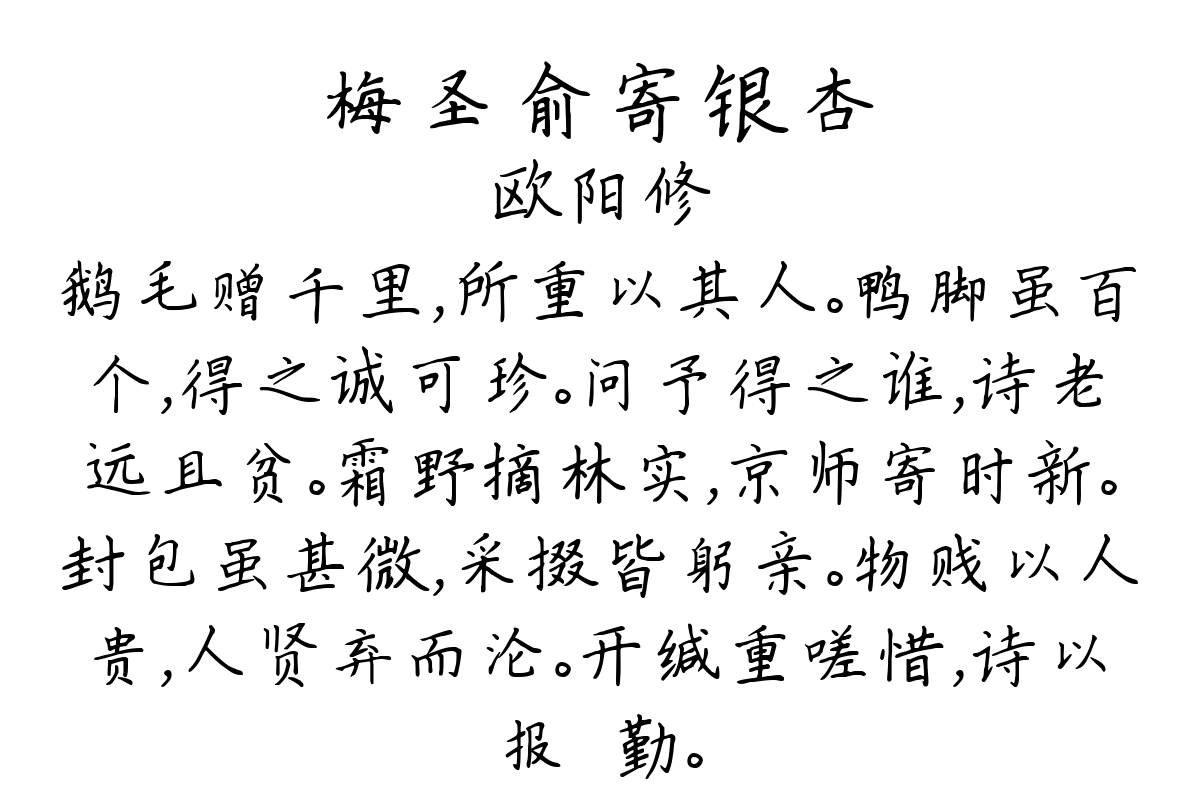 梅圣俞寄银杏
欧阳修
鹅毛赠千里,所重以其人。鸭脚虽百
个,得之诚可珍。问予得之谁,诗老
远且贫。霜野摘林实,京师寄时新。
封包虽甚微,采掇皆躬亲。物贱以人
贵,人贤弃而沦。开缄重嗟惜,诗以
报 勤。